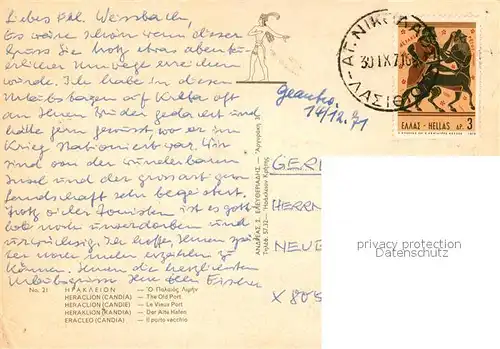 Liebes Frl. Weissbach,
Es wäre schön wenn dieser
Gruss Sie trotz etwas abenteu-
erlicher Umwege erreichen
würde. Ich habe in diesen
Urlaubstagen auf Kreta oft
an Ihren Bruder gedacht und
hätte gern gewusst, wo er im
Krieg stationiert war. Wir
sind von der wunderbaren
Insel und der grossartigen
Landschaft sehr begeistert.
Trotz der Touristen ist es gott-
lob noch unverdorben und
urwüchsig. Ich hoffe, Ihnen
mehr erzählen zu
können. Ihnen die herzlichsten
Urlaubsgrüsse Ihre Fischer
14/12.71
ΑΓ. ΝΙΚΟΛΑΟΣ
30 IX 71
ΛΑΣΙΘΙ
ΕΛΛΑΣ - HELLAS ΔΡ. 3
GER
HERRN
NEUE
X 805
ΑΝΔΡΕΑΣ Σ. ΕΛΕΥΘΕΡΙΑΔΗΣ
privacy protection
Datenschutz
No. 21 ΗΡΑΚΛΕΙΟΝ — Ὁ Παλαιὸς Λιμὴν
HERACLION (CANDIA) — The Old Port
HERACLION (CANDIE) — Le Vieux Port
HERAKLION (KANDIA) — Der Alte Hafen
ERACLEO (CANDIA) — Il porto vecchio